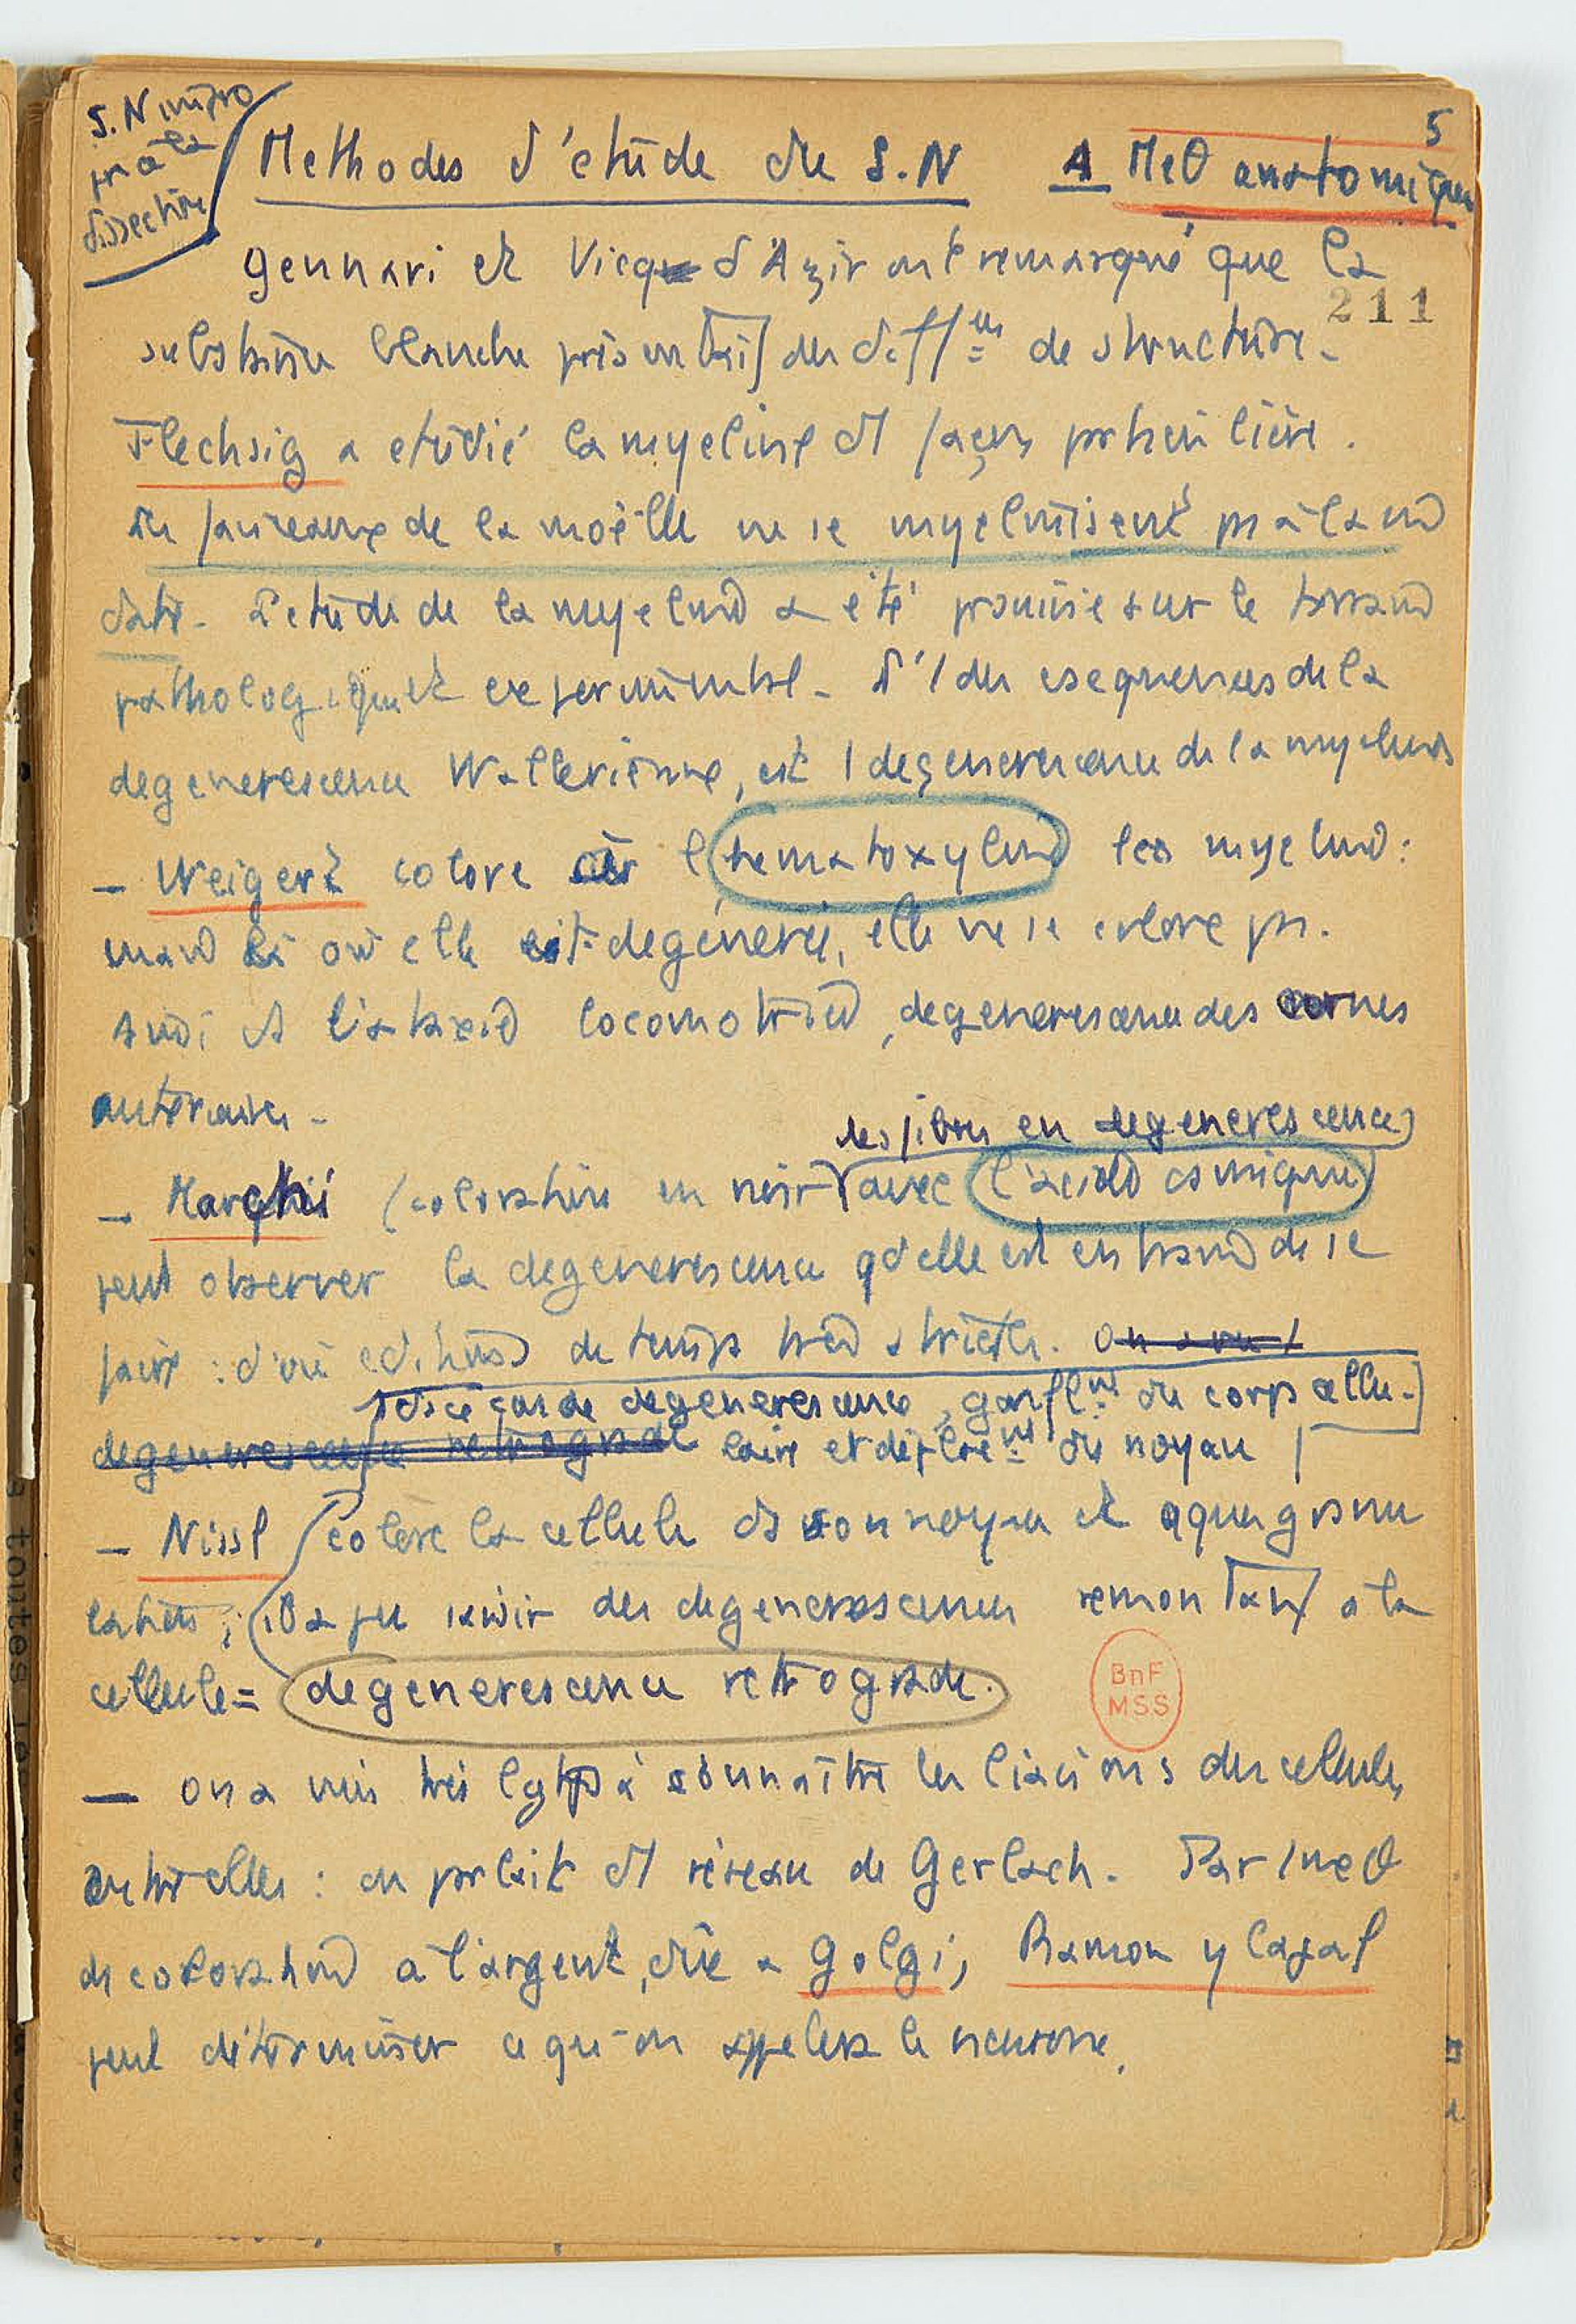 5
S.N impro
pr à la
dissection
Methodes d'étude du S.N A Meθ anatomiques
Gennari et Vicq d'Azir ont remarqué que la
211
substance blanche présentait des diff de structure.
Flechsig a etudié la myeline d' façon particulière.
faisceaux de la moëlle ne se myelinisent pas à la m
date. L'etude de la myeline a été sur le terrain
pathologique et experimental. des de la
degenerescence Wallerienne, est 1 degenerescence de la myeline
— Weigert colore l'hematoxyline les myelines :
mais là où elle est degénerée, elle ne se colore pas.
Ainsi ds l'ataxie locomotrice, degenerescence des cornes
anterieures -
des fibres en degenerescence
— Marchi (coloration en noir avec l'acide osmique
peut observer la degenerescence qd elle est en train de se
faire : d'où de temps très stricte. On a vu 1
degenerescence, gonfl^nt du corps cellu-
degenerescence retrograde laire et déplac^nt du noyau
— Nissl colore la cellule ds son noyau et granu
lations ; a pu des degenerescences remontant à la
cellule = degenerescence retrograde.
— on a mis très lgtps à connaître les liaisons des cellules
entre elles : on parlait d' réseau de Gerlach. Par 1 meθ
de coloration à l'argent, dûe a Golgi, Ramon y Cajal
peut déterminer ce qu'on appelera le neurone.
BnF
MSS